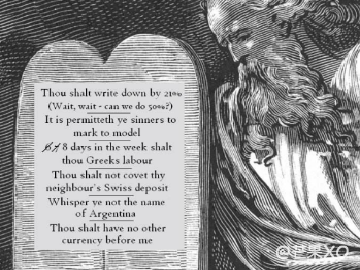 Thou shalt write down by 21%
(Wait, wait - can we do 50%?)
It is permitteth ye sinners to
mark to model
6 7 8 days in the week shalt
thou Greeks labour
Thou shalt not covet thy
neighbour's Swiss deposit
Whisper ye not the name
of Argentina
Thou shalt have no other
currency before me